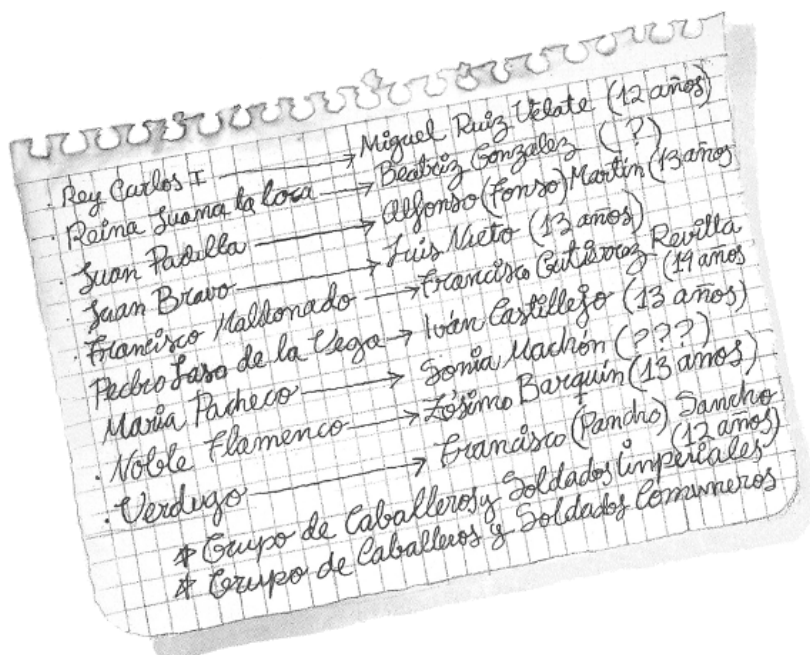 . Rey Carlos I → Miguel Ruiz Velate (12 años)
. Reina Juana la loca → Beatriz Gonzalez (?)
. Juan Padilla → Alfonso (Fonso) Martín (13 años
. Juan Bravo → Luis Nieto (13 años)
. Francisco Maldonado → Francisco Gutiérrez Revilla
(14 años
Pedro Laso de la Vega → Iván Castillejo (13 años)
María Pacheco → Sonia Machón (???)
. Noble Flamenco → Zósimo Barquín (13 años)
. Verdugo → Francisco (Pandro) Sancho
(12 años)
* Grupo de Caballeros y Soldados imperiales
* Grupo de Caballeros y Soldados Comuneros